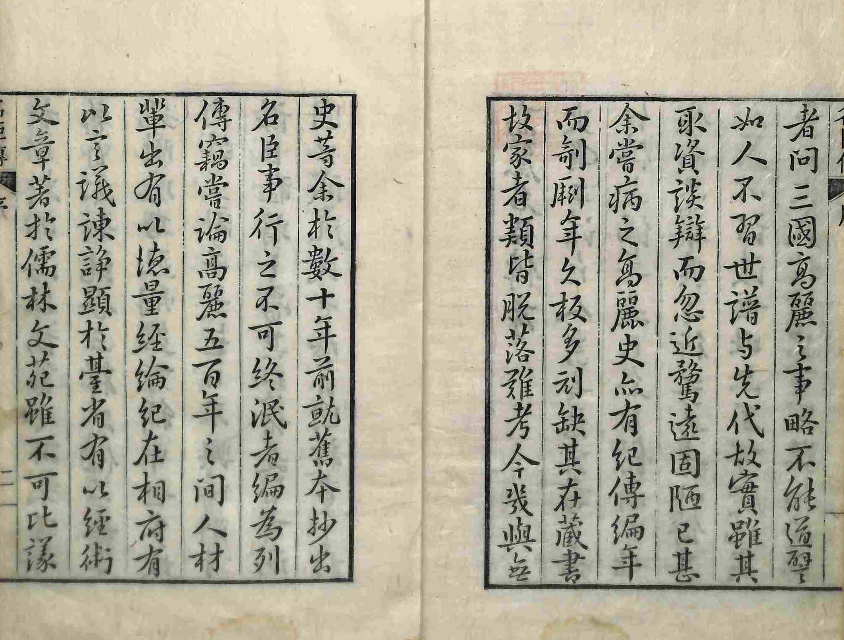 者問三國高麗之事略不能道譬
如人不習世譜与先代故實雖其
取資談辯而忽近騖遠固陋已甚
余嘗病之高麗史亦有紀傳編年
而剞劂年久板多刓缺其在藏書
故家者類皆脫落難考今幾與無
史等余於數十年前就舊本抄出
名臣事行之不可終泯者編為列
傳竊嘗論高麗五百年之間人材
輩出有以德量經綸紀在相府有
以言議諫諍顯於臺省有以經術
文章著於儒林文苑雖不可比議